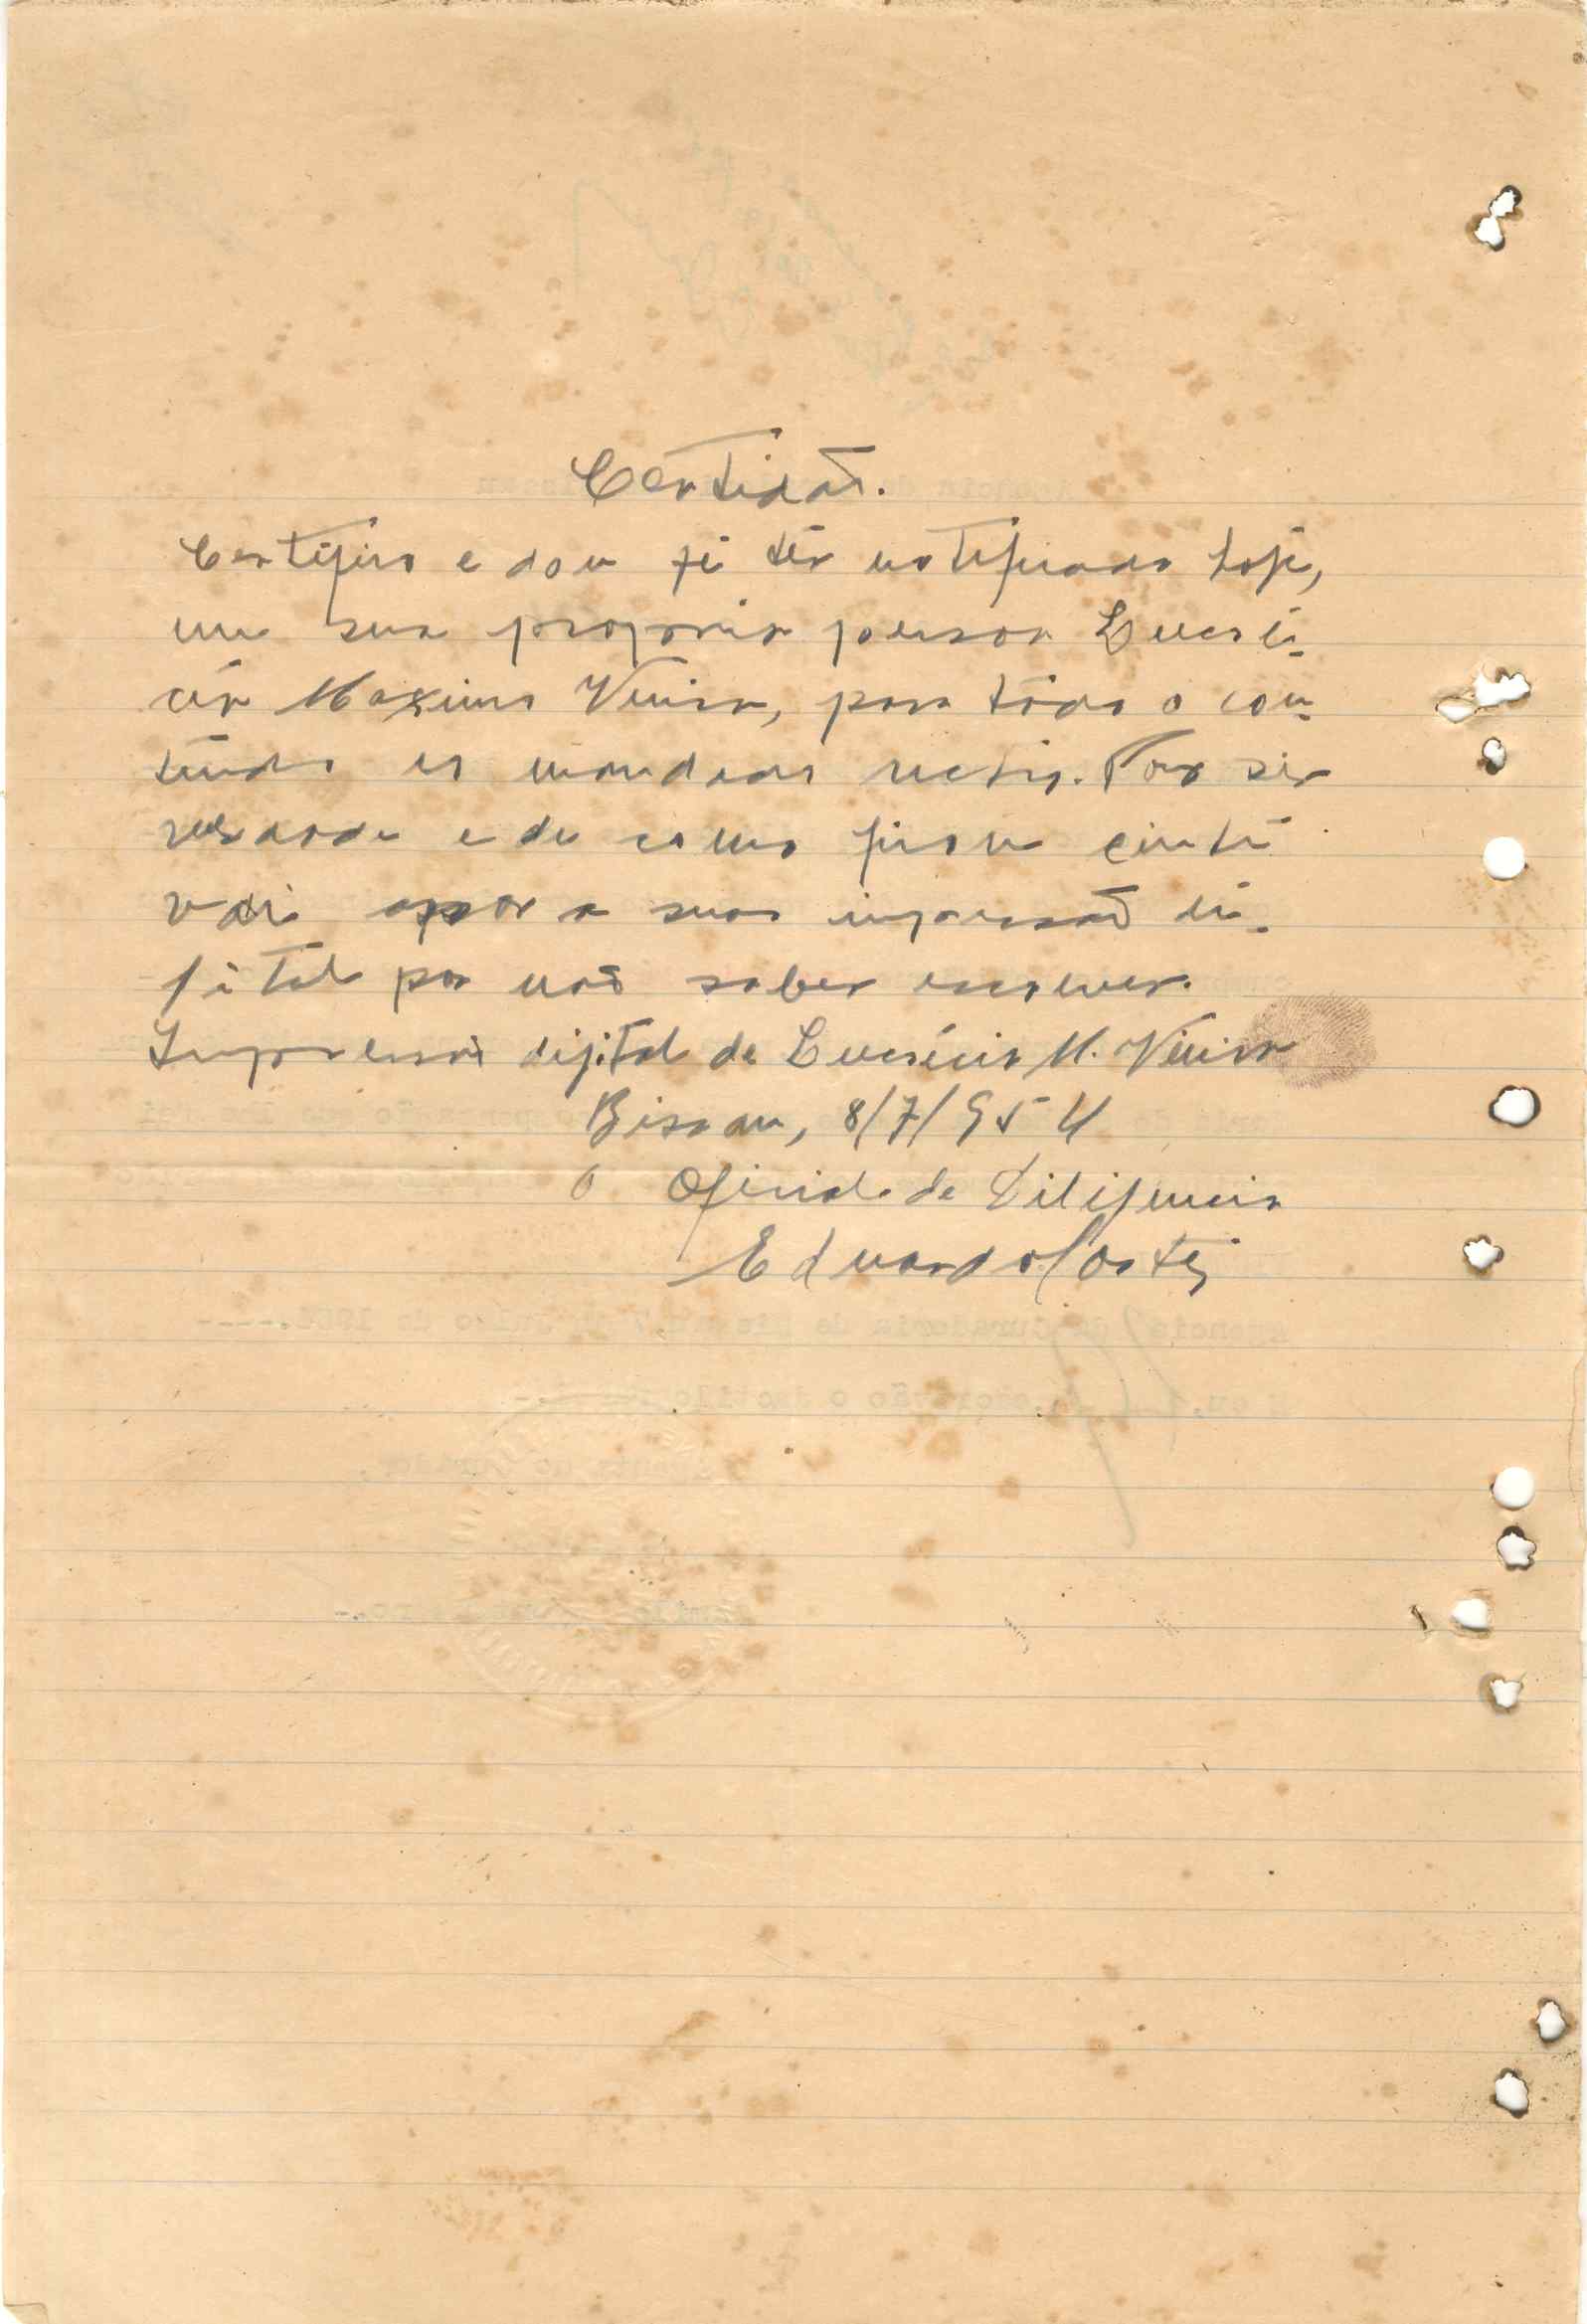 Certidão.
Certifico e dou fé ter notificado hoje,
em sua propria pessoa Lucré-
cia Maximo Vieira, para todo o con-
teúdo do mandado rectro. Por ser
verdade e de como ficou ciente
vai apor a sua impressão di-
gital por não saber escrever.
Impressão digital de Lucrécia M. Vieira
Bissau, 8/7/954
O Oficial de Diligencia
Eduardo